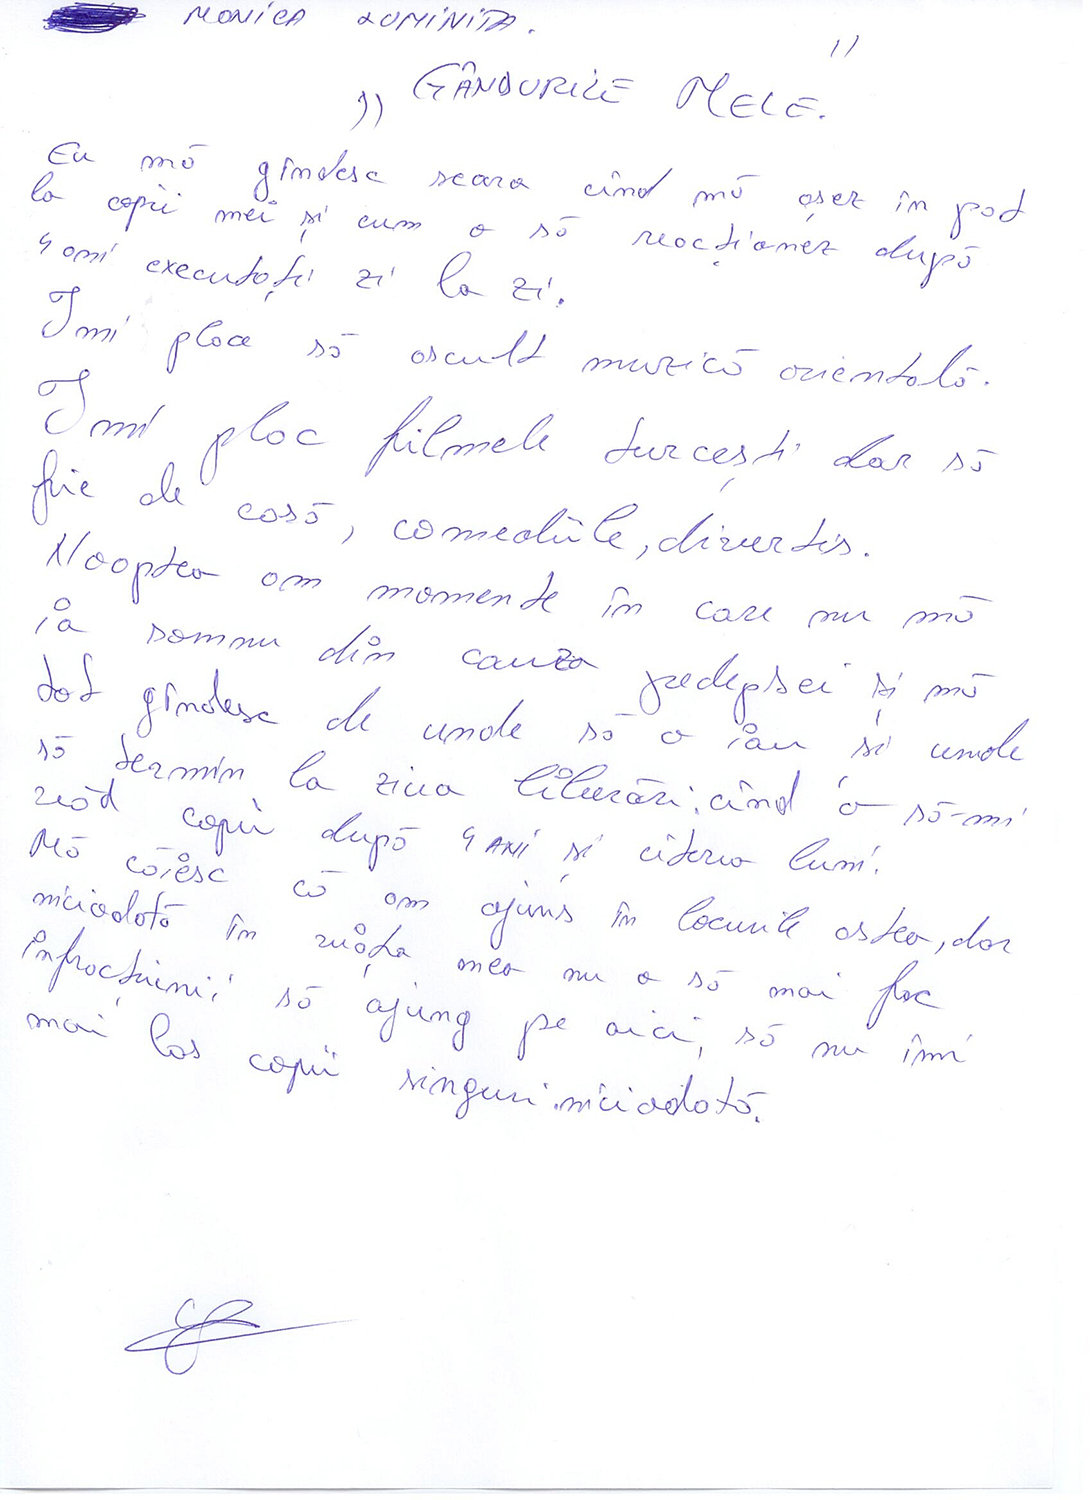 MONICA LUMINIȚA.
„ GÂNDURILE MELE. ”
Eu mă gîndesc seara cînd mă așez în pat
la copii mei și cum o să reacționez după
4 ani executați zi la zi.
Imi place să ascult muzică orientală.
Imi plac filmele turcești dar să
fie de casă, comediile, divertis.
Noaptea am momente în care nu mă
ia somnu din cauza pedepsei și mă
tot gîndesc de unde să o iau și unde
să termin la ziua liberări; cînd o să-mi
văd copii după 4 ANI și citeva luni.
Mă căiesc că am ajuns în locurile astea, dar
niciodată în viața mea nu o să mai fac
înfracțiuni; să ajung pe aici, să nu îmi
mai las copii singuri niciodată.